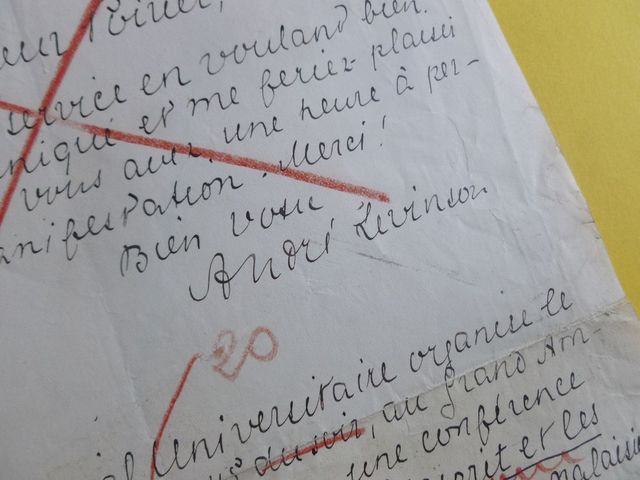 service en voulant bien
niqué et me feriez plaisir
vous avez une heure à per-
anifestation. Merci!
Bien vôtre
André Levinson
20
Universitaire organise le
du soir, au Grand Am-
une conférence
et les